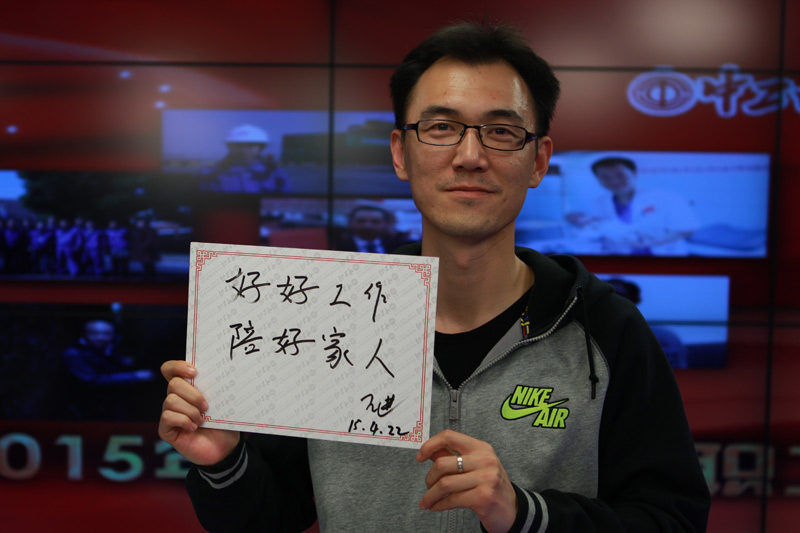 中工
好好工作
陪好家人
15.4.22
NIKE
AIR
2015
职工